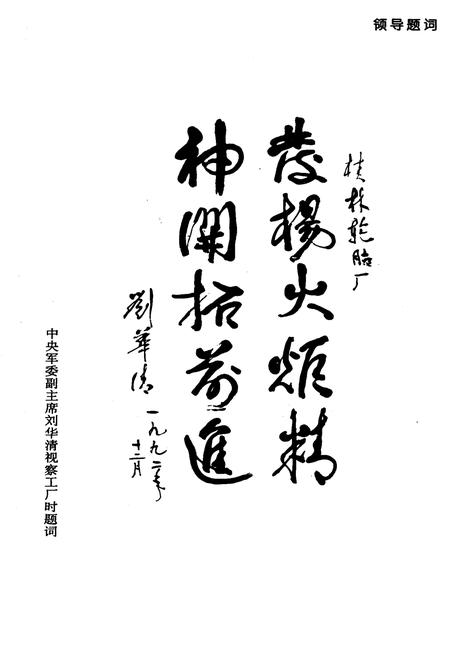 领导题词
桂林轮胎厂
發揚火炬精
神開拓前進
劉華清一九九二年
十二月
中央军委副主席刘华清视察工厂时题词